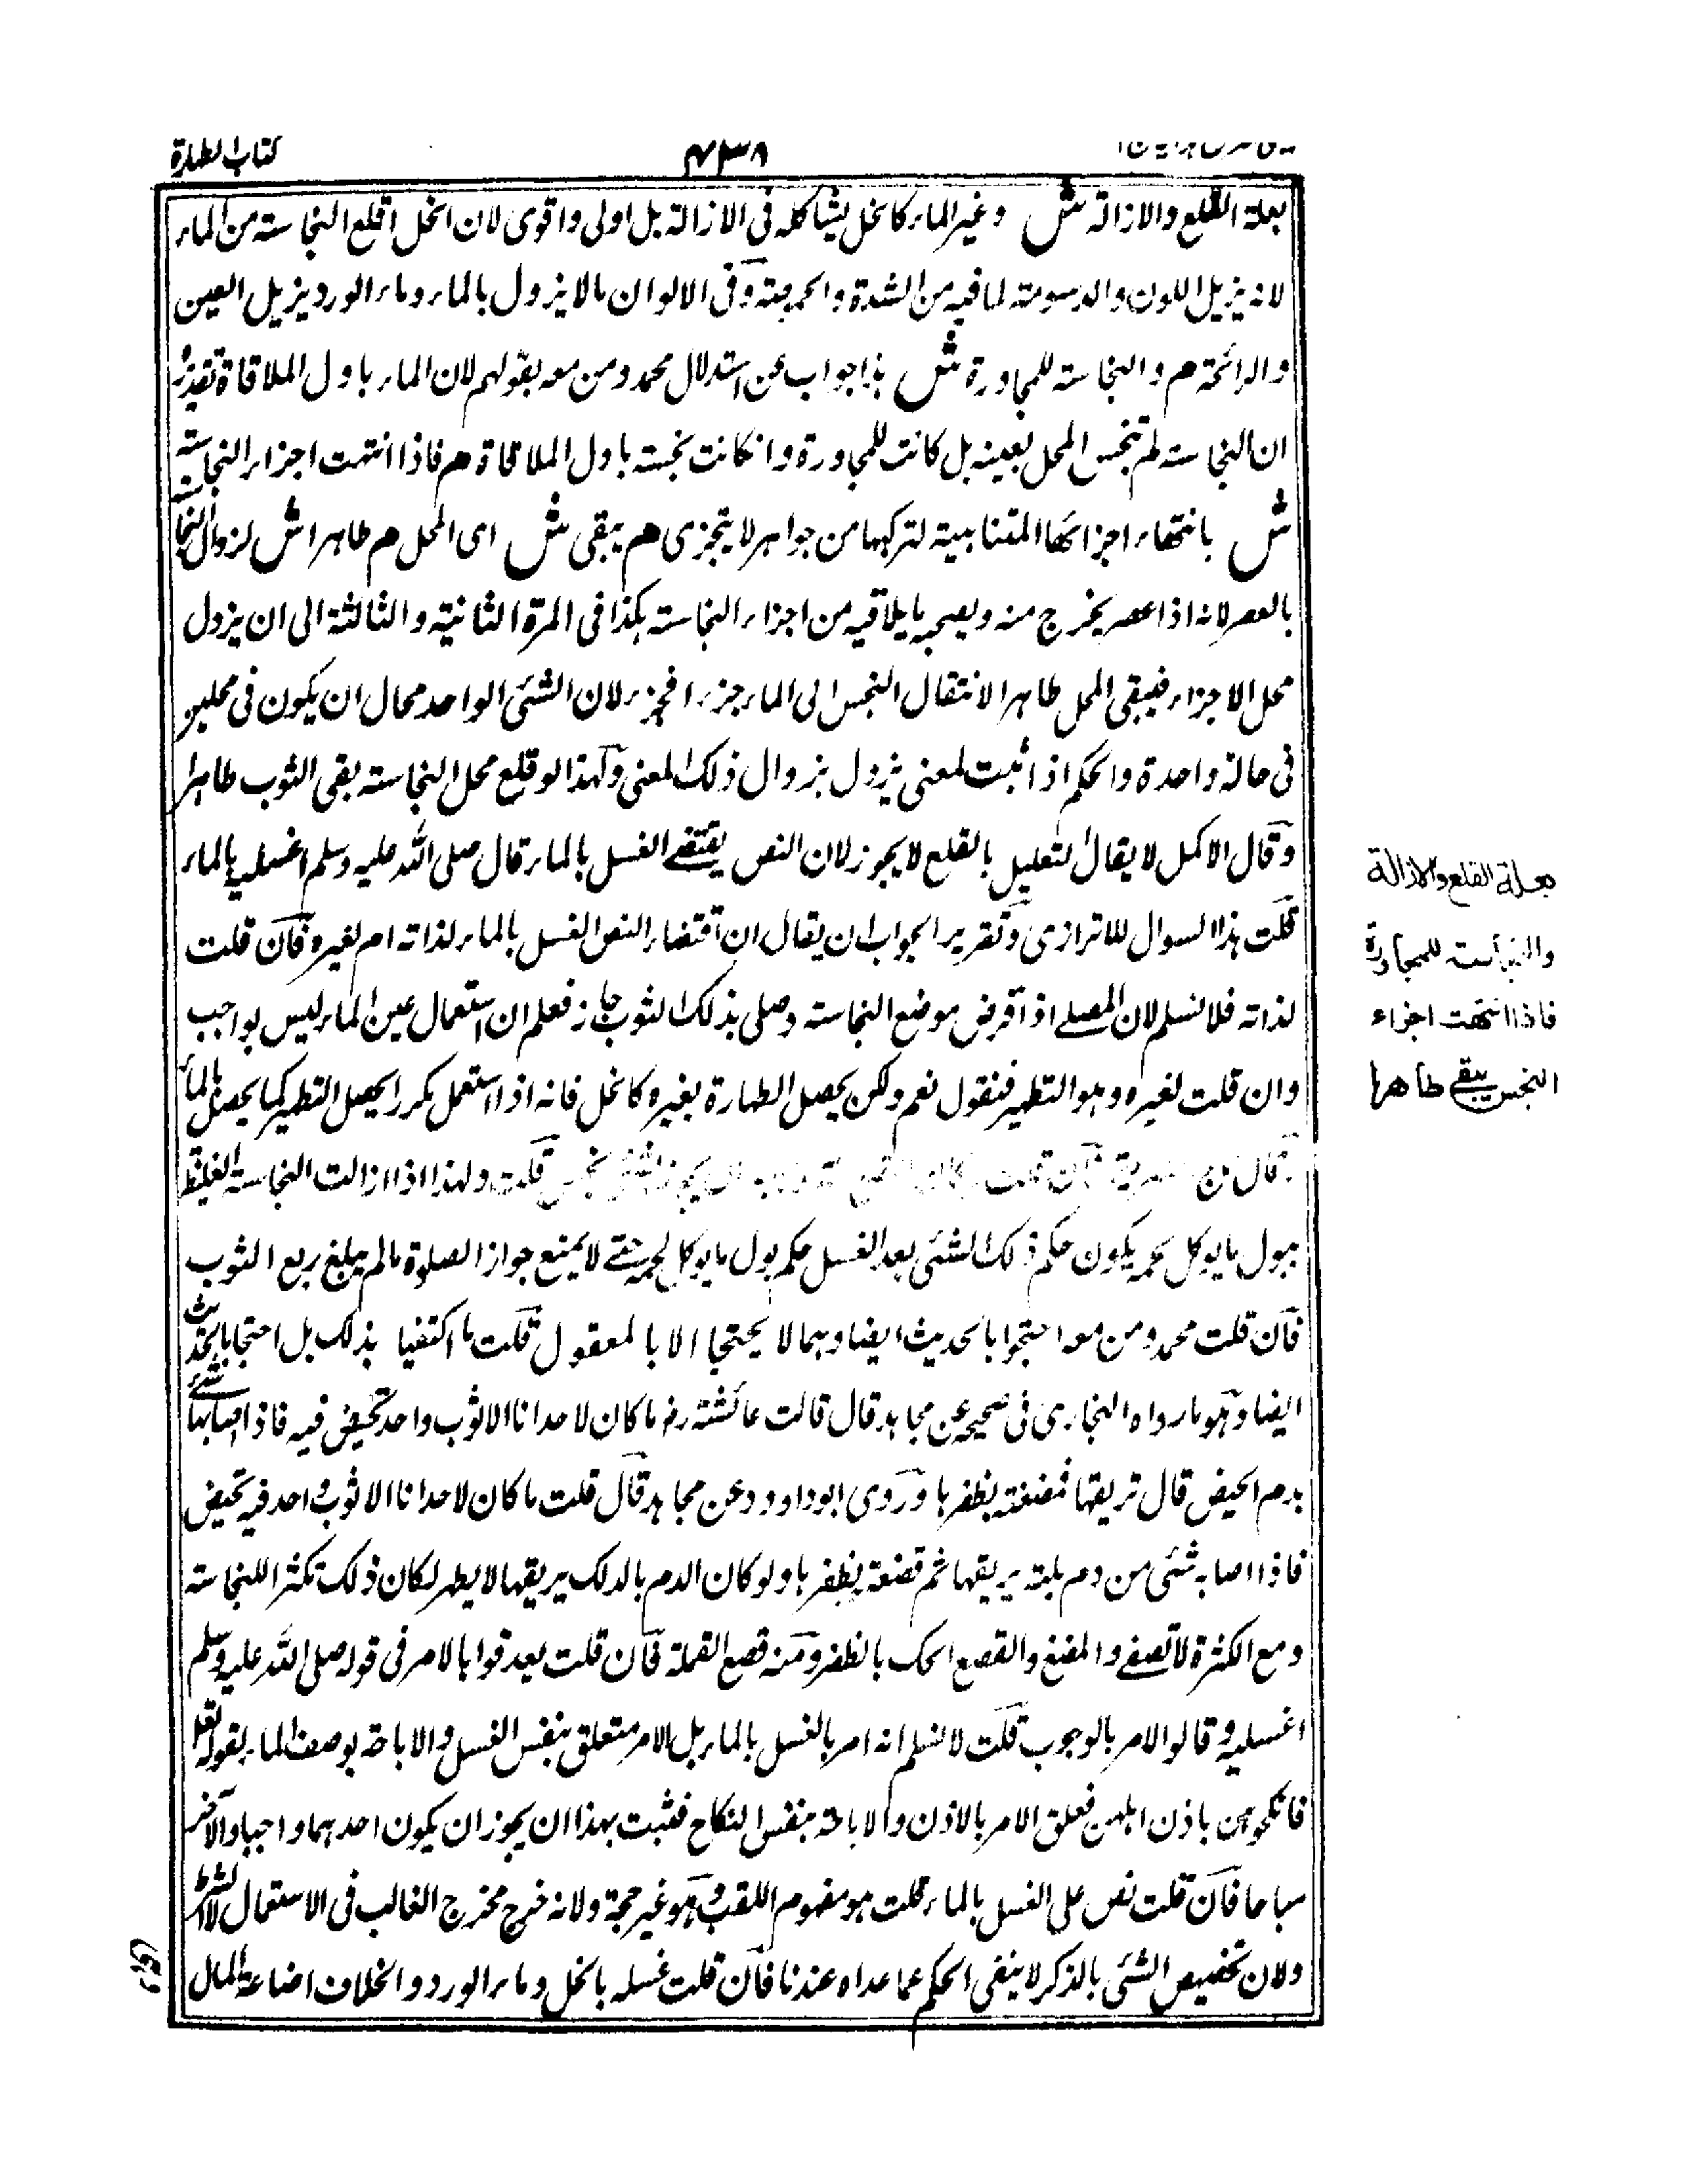 كتاب الطهارة
٧٣٨
بعلة القلع والازالة ش وغير الماء كالخل يشاكله فى الازالة بل اولى واقوى لان الخل اقلع النجاسته من الماء
لانه يزيل اللون والدسومته لما فيه من الشدة والحموضته وفى الالوان مالا يزول بالماء وماء الورد يزيل العين
والرائحة م والنجاسته للمجاورة ش هذا جواب عن استدلال محمد ومن معه بقولهم لان الماء باول الملاقاة تقديره
ان النجاسته لم تنجس المحل بعينه بل كانت للمجاورة وانكانت نجسته باول الملاقاة م فاذا انتهت اجزاء النجاسته
ش بانتهاء اجزائها المتناهية لتركبها من جواهر لا يتجزى م يبقى ش اى المحل م طاهرا ش لزوال النجاسته
بالعصر لانه اذا عصر يخرج منه ويصحبه ما يلاقيه من اجزاء النجاسته هكذا فى المرة الثانية والثالثة الى ان يزول
محل الاجزاء فيبقى المحل طاهرا لانتقال النجس الى الماء جزءا فجزء لان الشئى الواحد محال ان يكون فى محلين
فى حالة واحدة والحكم اذا ثبت لمعنى يزول بزوال ذلك المعنى ولهذا لو قلع محل النجاسته بقى الثوب طاهرا
وقال الاكمل لا يقال التعليل بالقلع لا يجوز لان النص يقتضے الغسل بالماء قال صلى الله عليه وسلم اغسليه بالماء
قلت هذا السوال للاترازى وتقرير الجواب ان يقال ان اقتضاء النص الغسل بالماء لذاته ام لغيره فان قلت
لذاته فلا نسلم لان المصلے اذا قرض موضع النجاسته وصلى بذلك الثوب جاز فعلم ان استعمال عين الماء ليس بواجب
وان قلت لغيره وهو التطهير فنقول نعم ولكن يحصل الطهارة بغيره كالخل فانه اذا استعمل مكررا يحصل التطهير كما يحصل بالماء
قلت ولهذا اذا ازالت النجاسته الغليظة
ببول ما يوكل لحمه يكون حكم ذلك الشئى بعد الغسل حكم بول ما يوكل لحمه حتے لا يمنع جواز الصلوة ما لم يبلغ ربع الثوب
فان قلت محمد ومن معه احتجوا بالحديث ايضا وهما لا يحتجا الا بالمعقول قلت ما اكتفيا بذلك بل احتجا بالحديث
ايضا وهو ما رواه البخارى فى صحيحه عن مجاهد قال قالت عائشته رض ما كان لاحدانا الا ثوب واحد تحيض فيه فاذا اصابها شئے
بدم الحيض قال تريقها فمضغته بظفرها وروى ابو داوود عن مجاهد قال قلت ما كان لاحدانا الا ثوب واحد فيه تحيض
فاذا اصابه شئى من دم بلته بريقها ثم قصعته بظفرها ولو كان الدم بالدلك بريقها لا يطهر لكان ذلك تكثر اللنجاسته
ومع الكثرة لا تصفے والمضغ والقصع الحك بالظفر ومنه قصع القملة فان قلت بعد قوا بالامر فى قوله صلى الله عليه وسلم
اغسليه وقالوا الامر بالوجوب قلت لا نسلم انه امر بالغسل بالماء بل الامر متعلق بنفس الغسل والاباحة بوصف الماء بقوله تعالى
فانكحوهن باذن اهلهن فعلق الامر بالاذن والاباحة بنفس النكاح فثبت بهذا ان يجوز ان يكون احدهما واجبا والآخر
مباحا فان قلت نص على الغسل بالماء قلت هو مفهوم اللقب وهو غير حجة ولانه خرج مخرج الغالب فى الاستعمال لا الشرط
ولان تخصيص الشئى بالذكر لا ينفى الحكم عما عداه عندنا فان قلت غسله بالخل وماء الورد والخلاف اضاعة المال
بعلة القلع والازالة
والنجاسته للمجاورة
فاذا انتهت اجزاء
النجس يبقے طاهرا